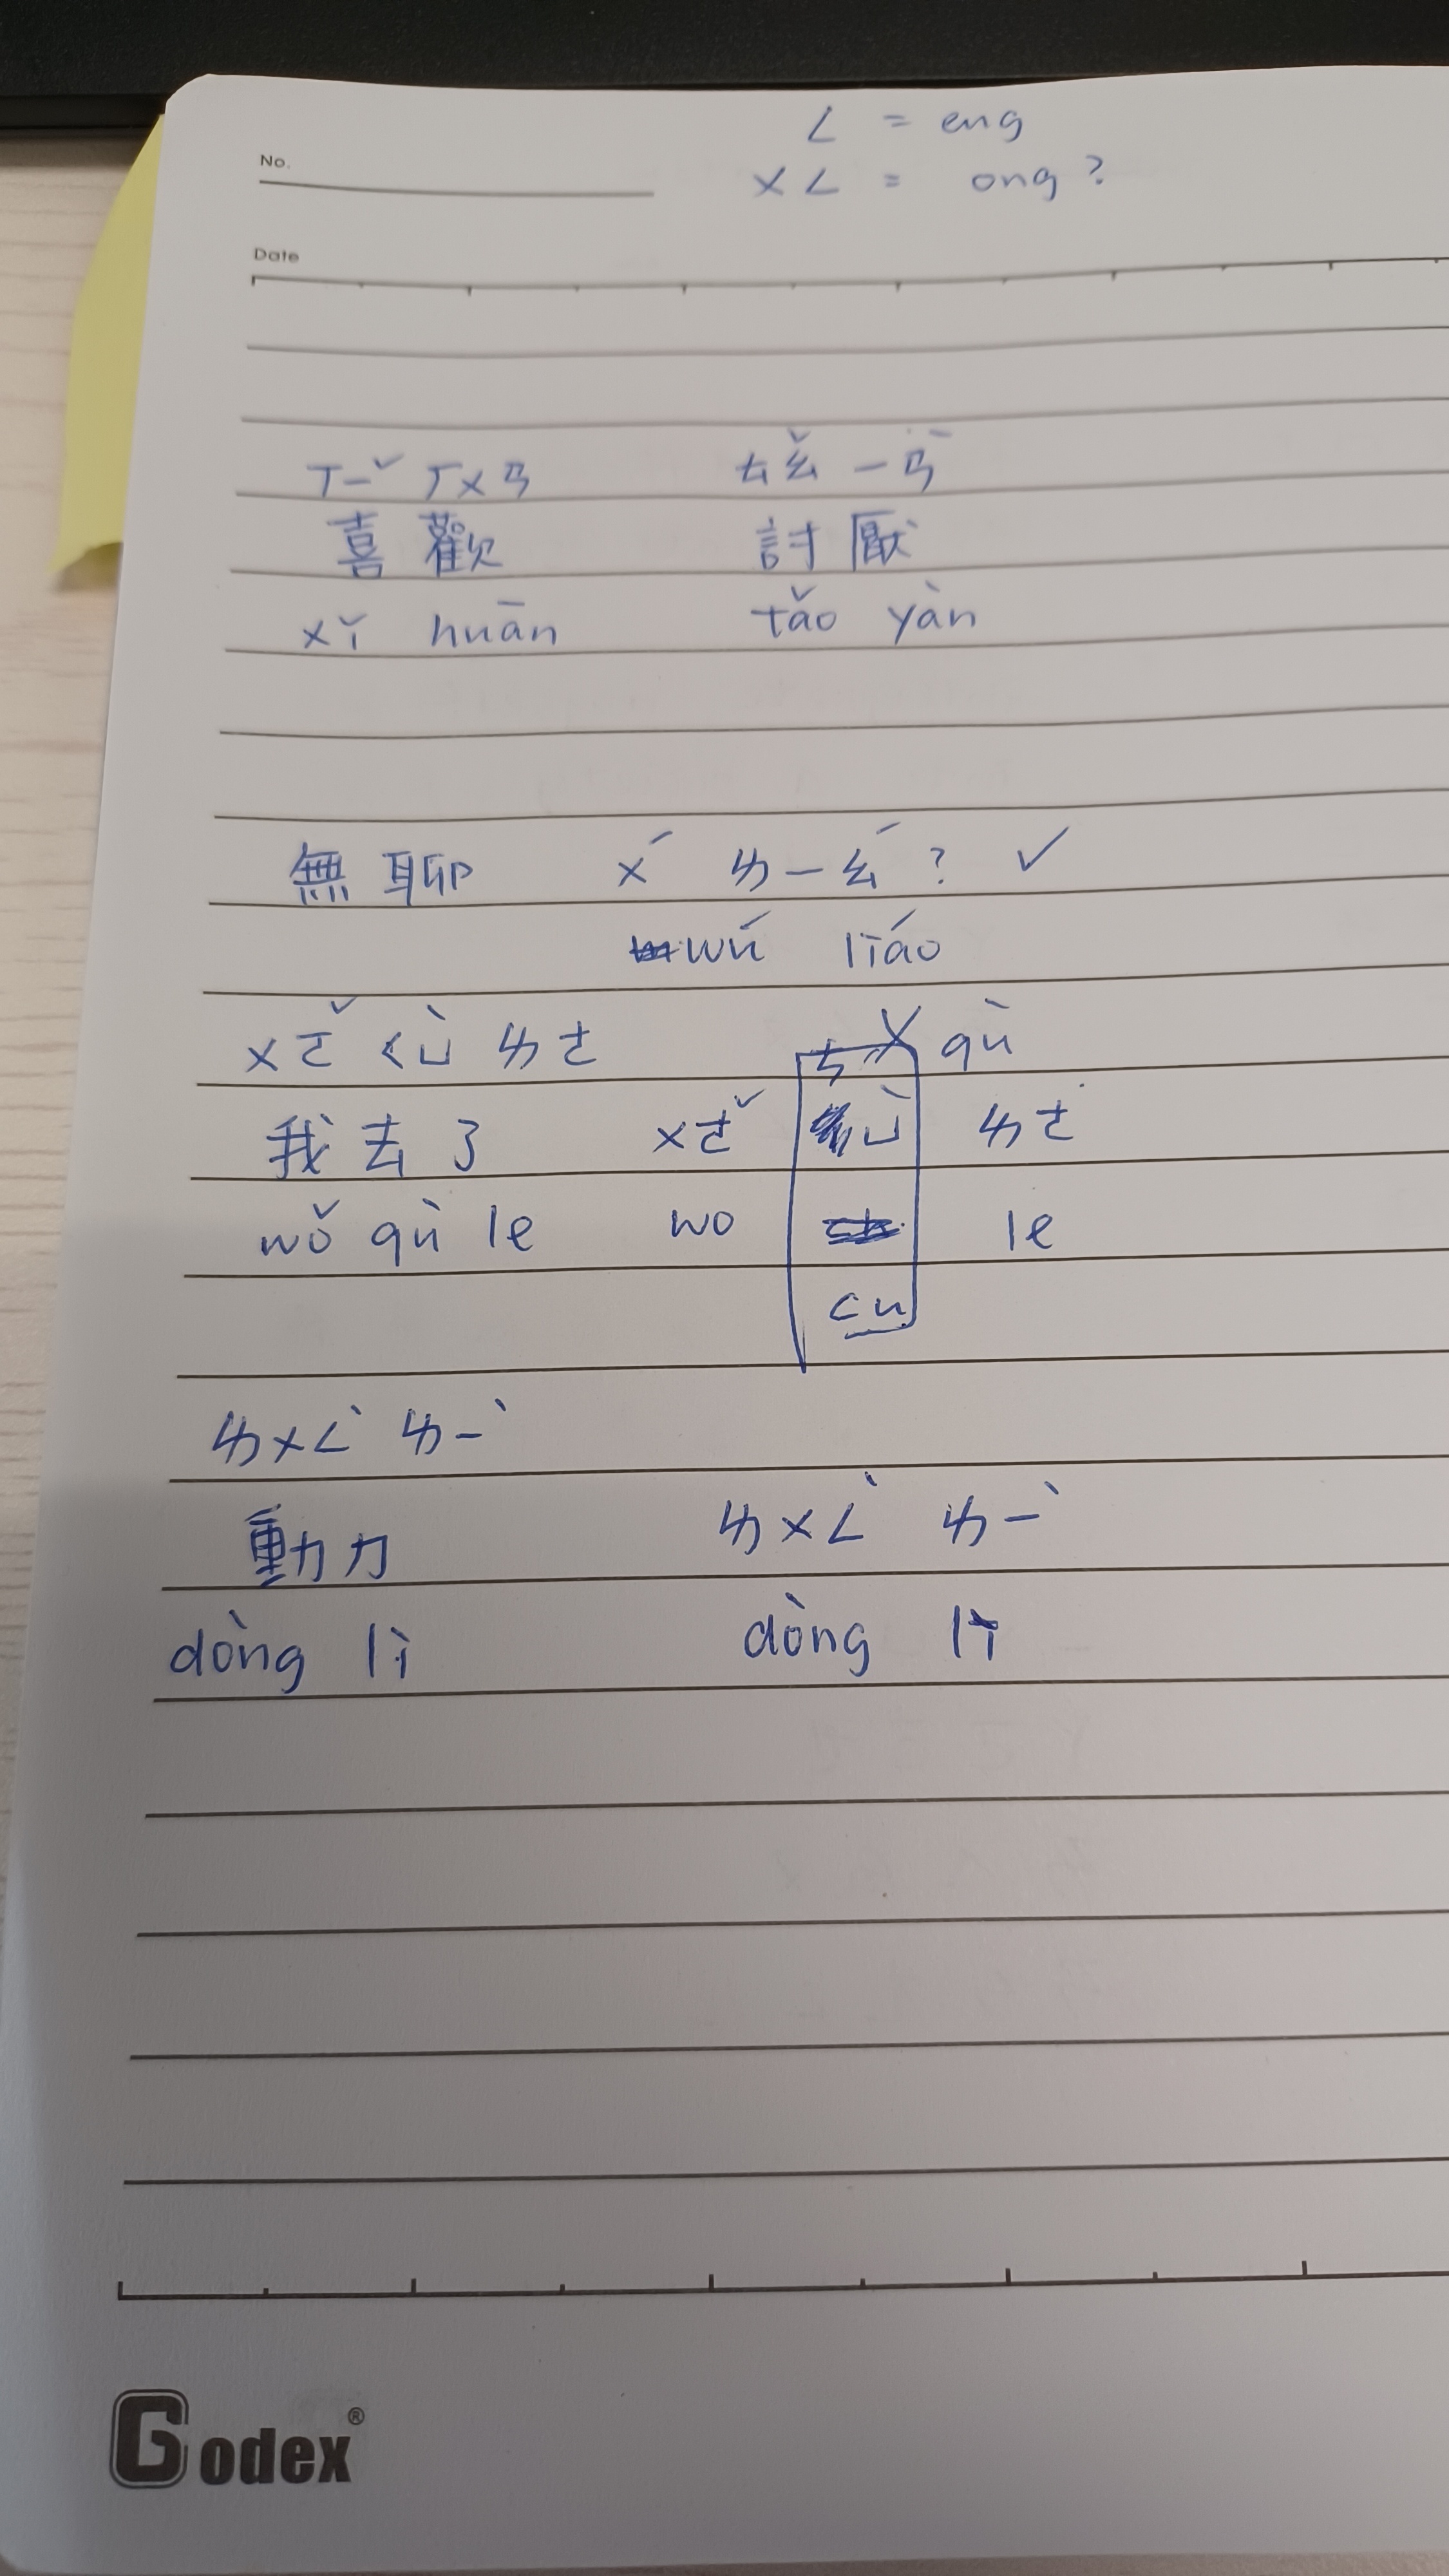 ㄥ = eng
ㄨㄥ = ong?
No.
Date
ㄒㄧˇ ㄏㄨㄢ ㄊㄠˇ ㄧㄢˋ
喜歡 討厭
xǐ huān tǎo yàn
無聊 ㄨˊ ㄌㄧㄠˊ? ✓
wú liáo
ㄨㄛˇ ㄑㄩˋ ㄌㄜ ㄘ X qù
我去了 ㄨㄛˇ ㄩˋ ㄌㄜ
wǒ qù le wo le
cu
ㄌㄨㄥˋ ㄌㄧˋ
動力 ㄌㄨㄥˋ ㄌㄧˋ
dòng lì dòng lì
Godex®